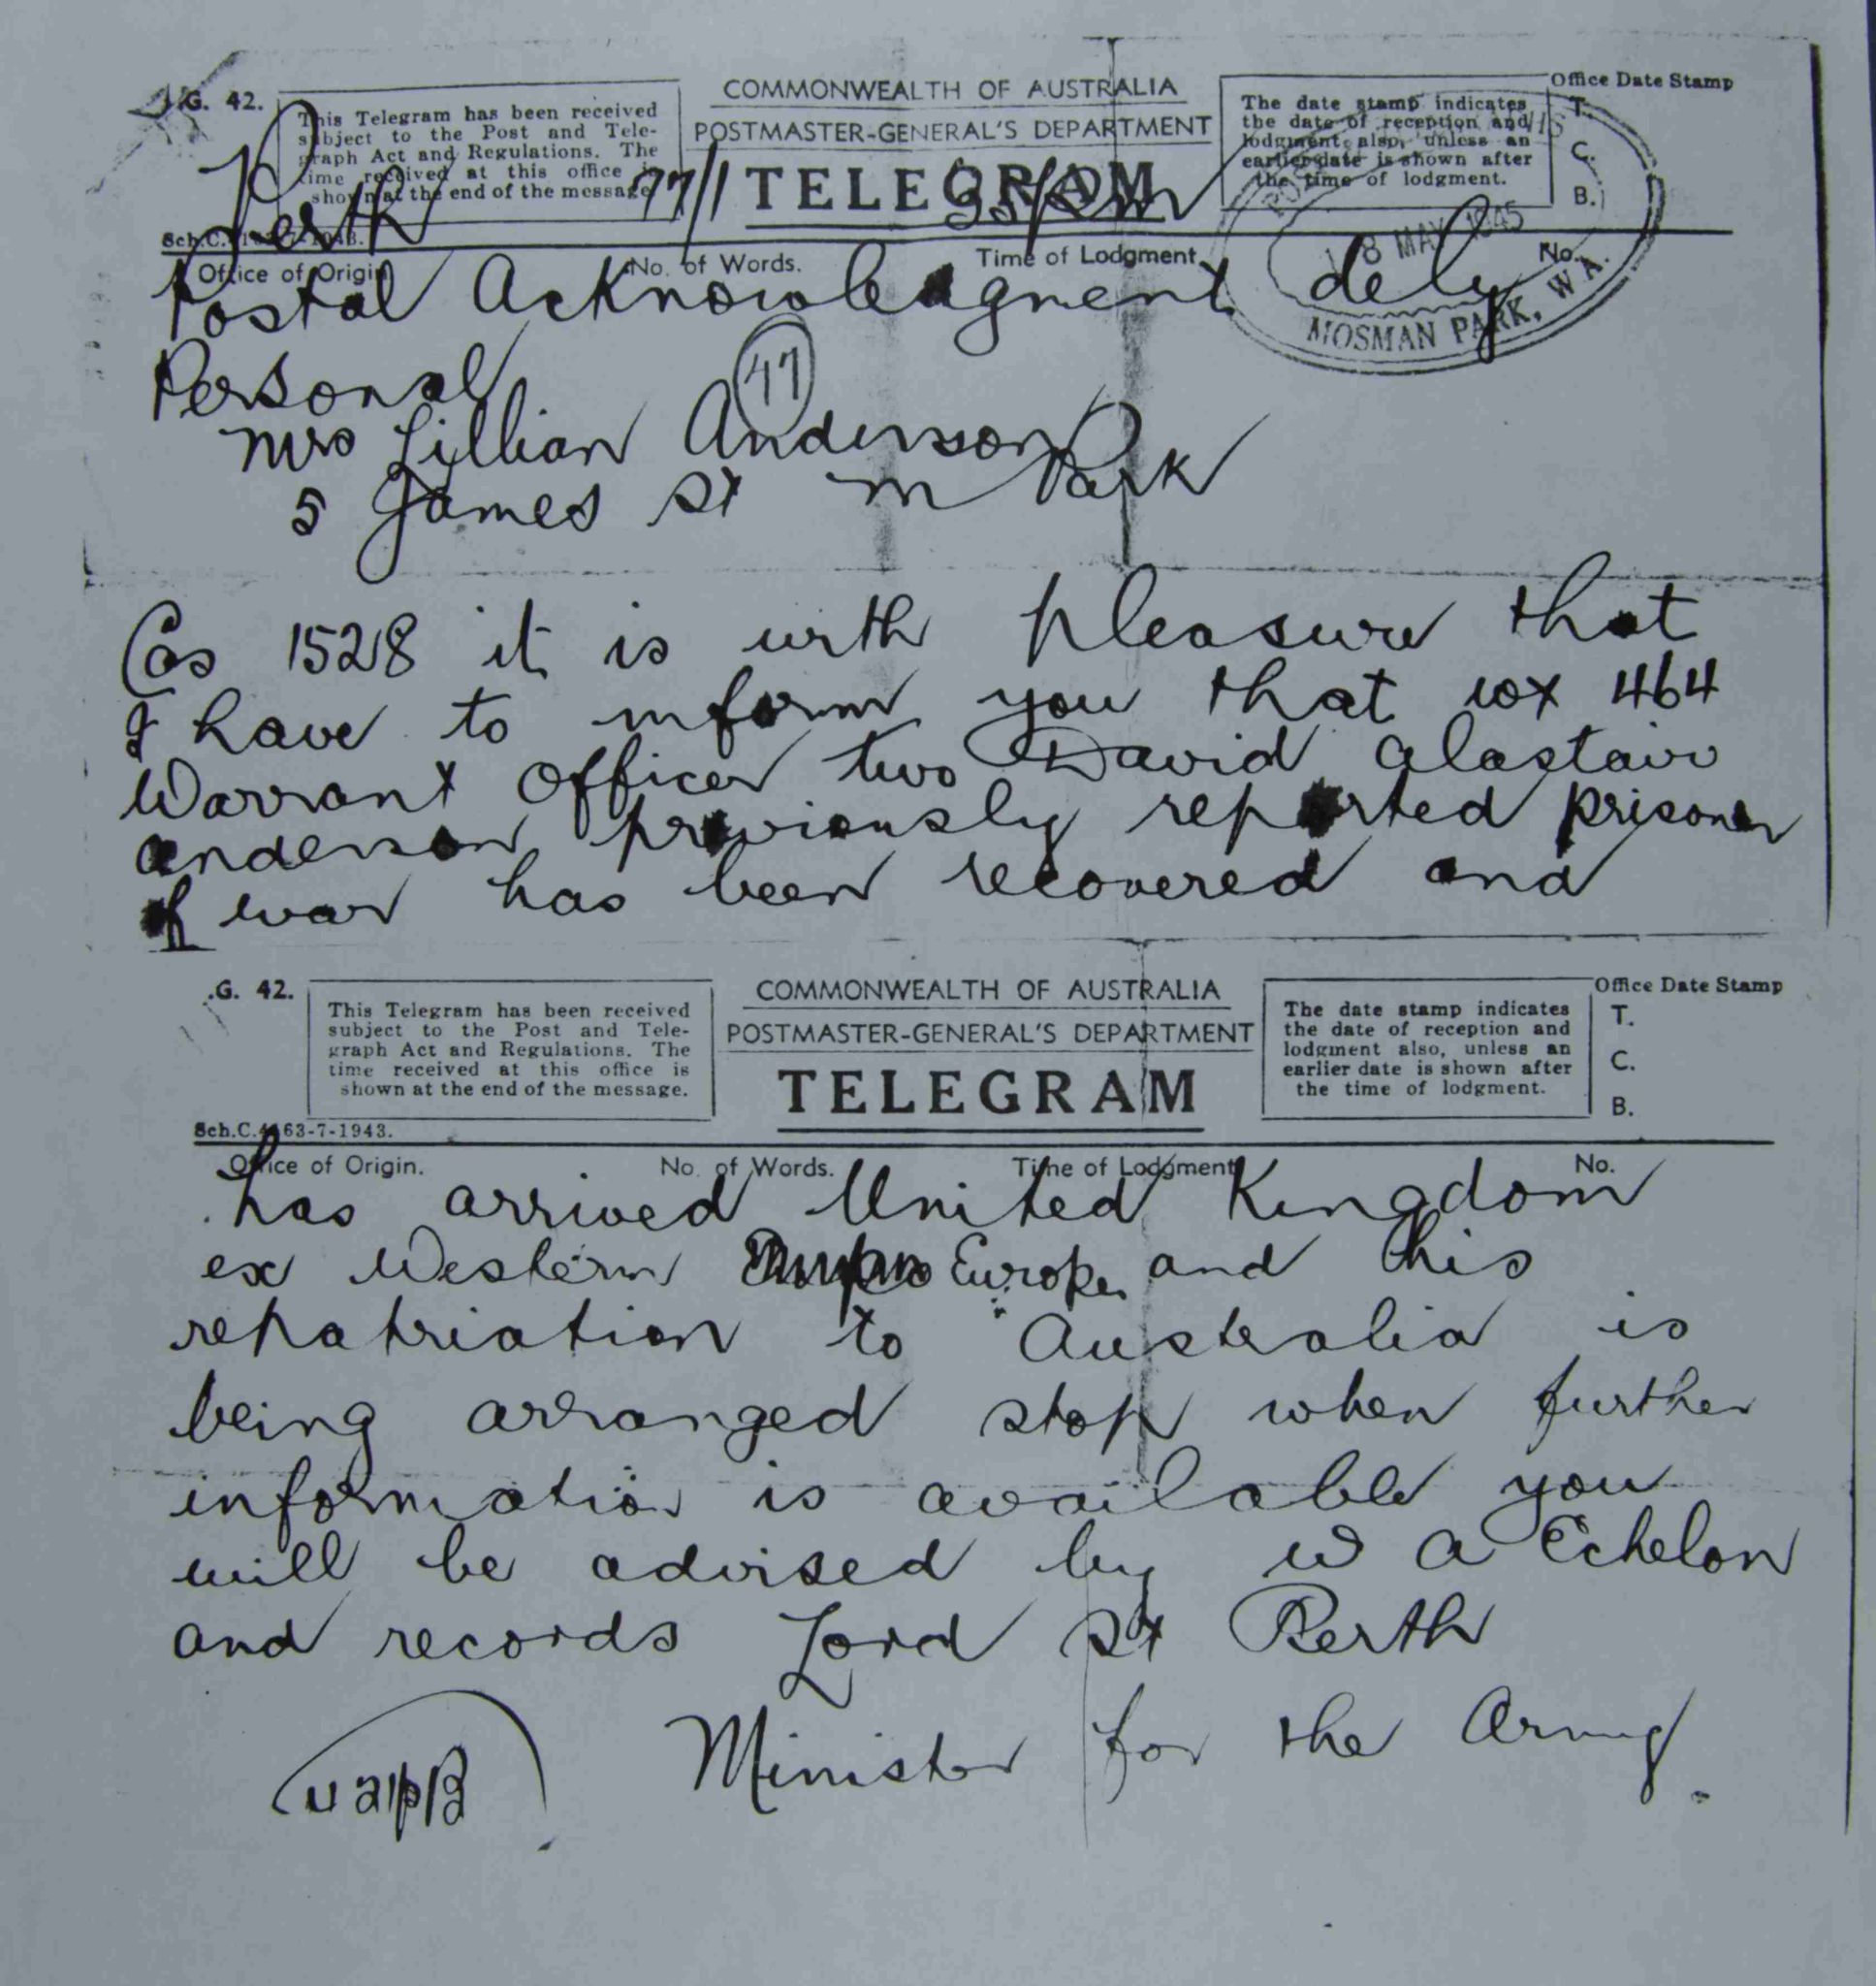 G. 42.
This Telegram has been received
subject to the Post and Tele-
graph Act and Regulations. The
time received at this office is
shown at the end of the message.
COMMONWEALTH OF AUSTRALIA
POSTMASTER-GENERAL'S DEPARTMENT
TELEGRAM
The date stamp indicates
the date of reception and
lodgment also, unless an
earlier date is shown after
the time of lodgment.
Office Date Stamp
T.
C.
B.
8 MAY 1945
MOSMAN PARK, W.A.
Perth 77/1
Office of Origin. No. of Words. Time of Lodgment. No.
Postal Acknowledgment dely
Personal
47
Mrs Lillian Anderson
5 James St M Park
Cas 1528 it is with pleasure that
I have to inform you that wx 464
Warrant Officer two David Alastair
Anderson previously reported prisoner
of war has been recovered and
G. 42.
This Telegram has been received
subject to the Post and Tele-
graph Act and Regulations. The
time received at this office is
shown at the end of the message.
Sch.C.4163-7-1943.
COMMONWEALTH OF AUSTRALIA
POSTMASTER-GENERAL'S DEPARTMENT
TELEGRAM
The date stamp indicates
the date of reception and
lodgment also, unless an
earlier date is shown after
the time of lodgment.
Office Date Stamp
T.
C.
B.
Office of Origin. No. of Words. Time of Lodgment. No.
has arrived United Kingdom
ex Western Europe and his
repatriation to Australia is
being arranged stop when further
information is available you
will be advised by W A Echelon
and records Lord St Perth
Minister for the Army